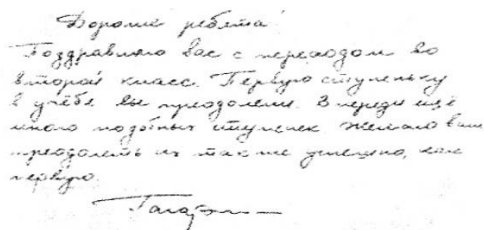 Дорогие ребята!
Поздравляю Вас с переходом во
второй класс. Первую ступеньку
в учёбе вы преодолели. Впереди ещё
много подобных ступенек. Желаю вам
преодолеть их также успешно, как
первую.
Гагарин